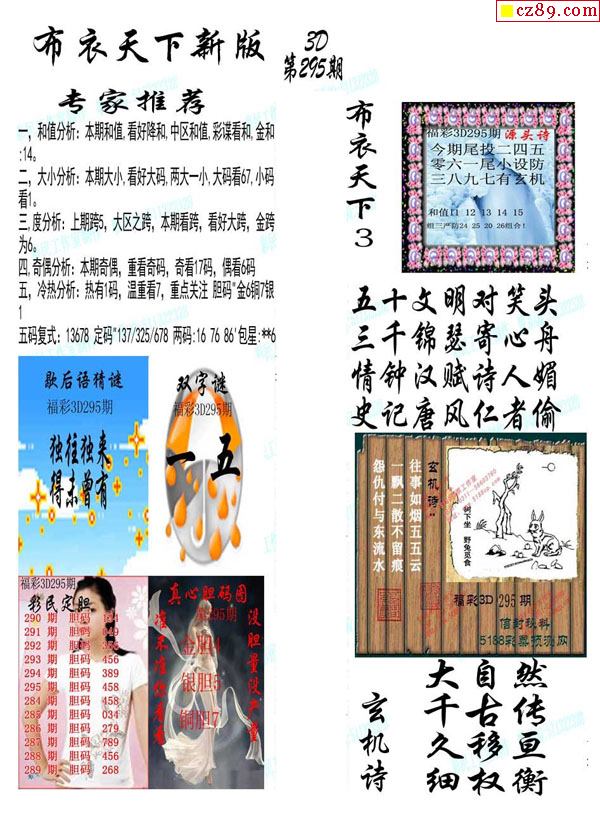 cz89.com
布衣天下新版
3D
第295期
专家推荐
一,和值分析:本期和值,看好降和,中区和值,彩谍看和,金和
:14。
二,大小分析:本期大小,看好大码,两大一小,大码看67,小码
看1。
三,度分析:上期跨5,大区之跨,本期看跨,看好大跨,金跨
为6。
四,奇偶分析:本期奇偶,重看奇码,奇看17码,偶看6码
五,冷热分析:热有1码,温重看7,重点关注 胆码"金6铜7银
1
五码复式:13678 定码"137/325/678 两码:16 76 86'包星:**6
歇后语猜谜
福彩3D295期
独往独来
得未曾有
双字谜
福彩3D295期
一五
福彩3D295期
彩民定胆
290 期 胆码
291 期 胆码
292 期 胆码
293 期 胆码 456
294 期 胆码 389
295 期 胆码 458
284 期 胆码 458
285 期 胆码 034
286 期 胆码 279
287 期 胆码 789
288 期 胆码 456
289 期 胆码 268
真心胆码图
第295期
金胆4
银胆5
铜胆7
布衣天下3
福彩3D295期 源头诗
今期尾投二四五
零六一尾小设防
三八九七有玄机
和值11 12 13 14 15
组三严防24 25 20 26组合!
五十文明对笑头
三千锦瑟寄心舟
情钟汉赋诗人媚
史记唐风仁者偷
玄机诗:
往事如烟五五云
一飘二散不留痕
怨仇付与东流水
树下坐 野兔觅食
福彩3D 295 期
信封秘料
5188彩票预测网
玄机诗
大自然
千古传
久移亘
细权衡